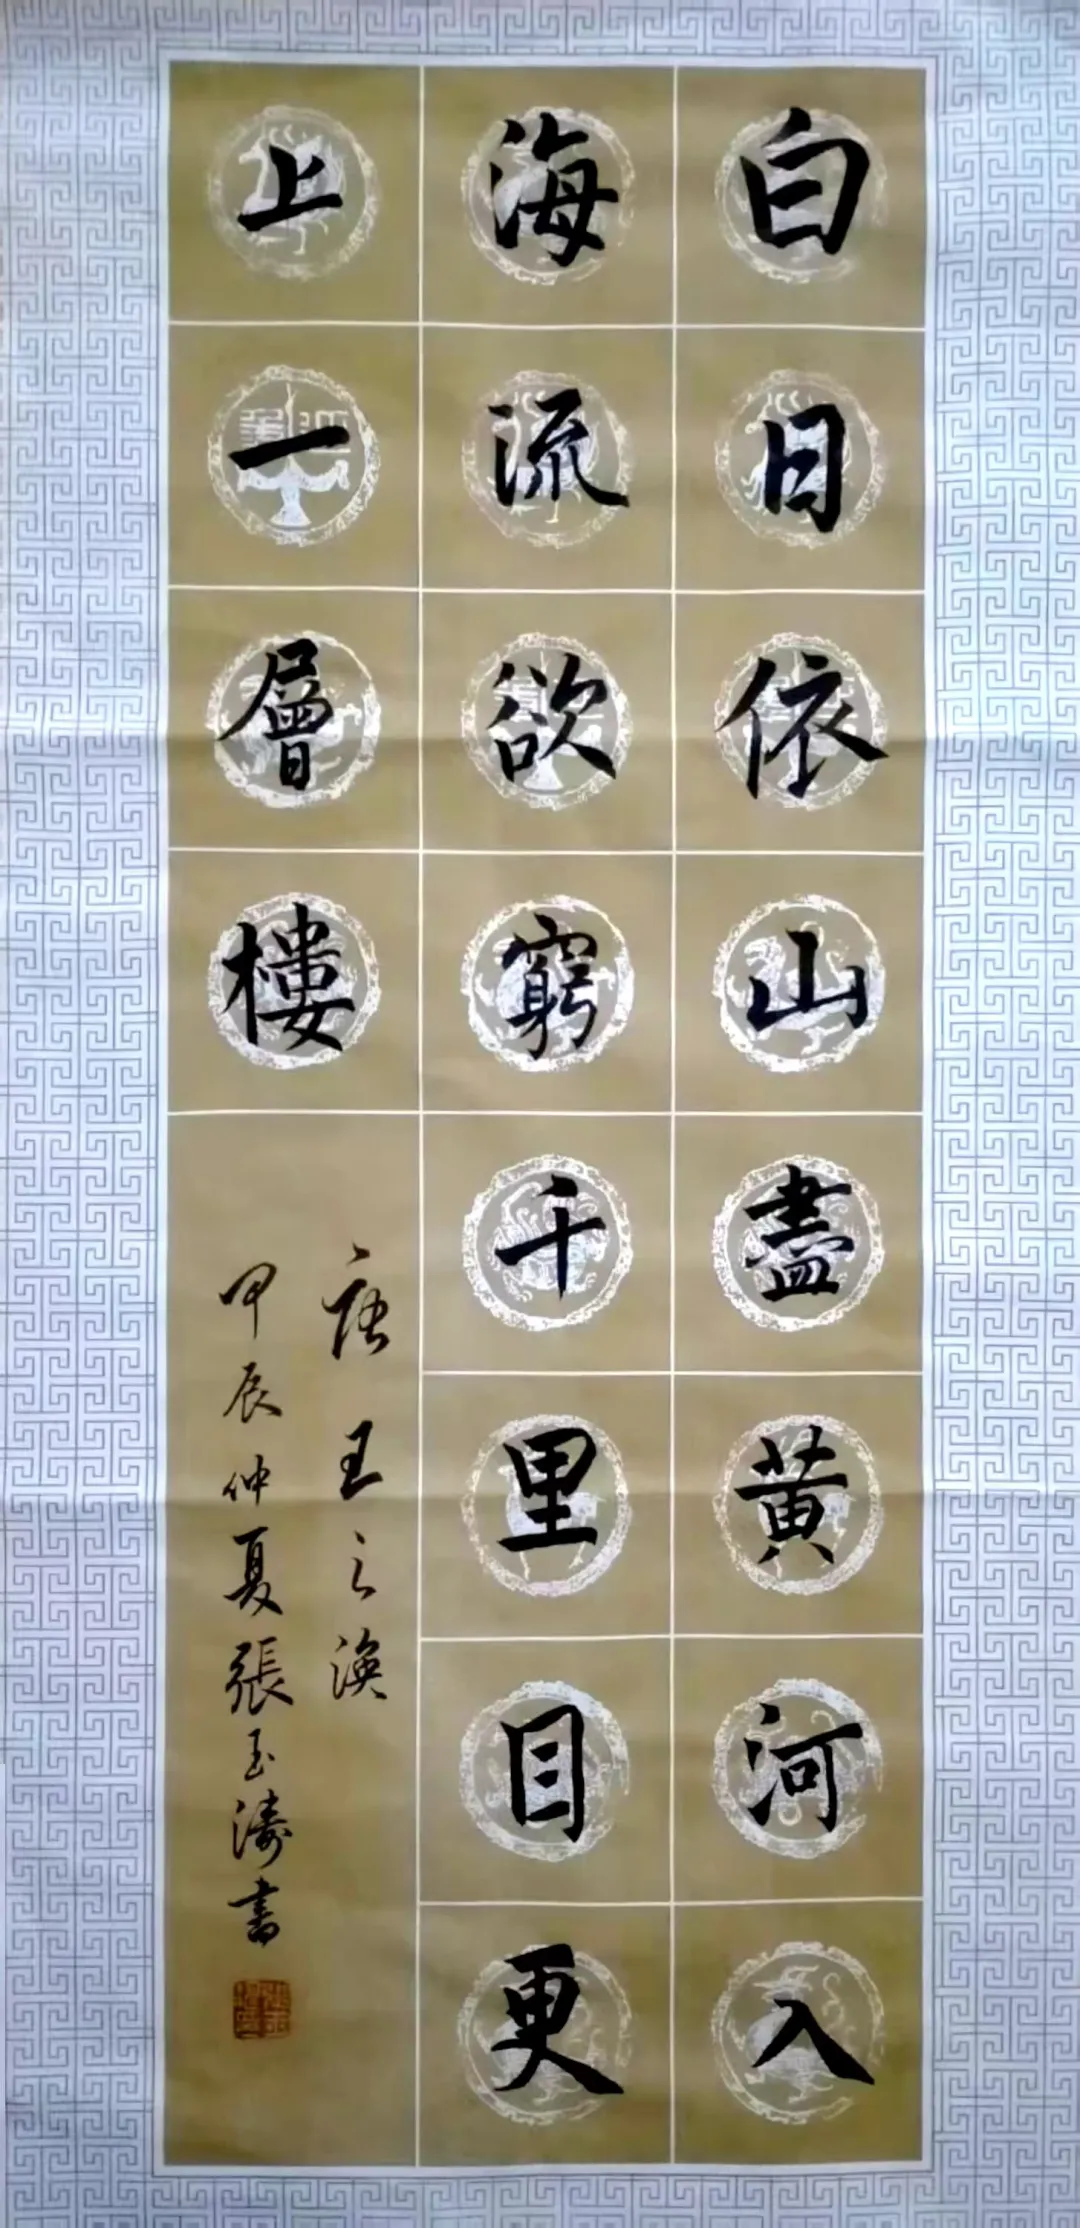 白日依山盡黄河入
海流欲窮千里目更
上一層樓
唐王之渙
甲辰仲夏張玉濤書